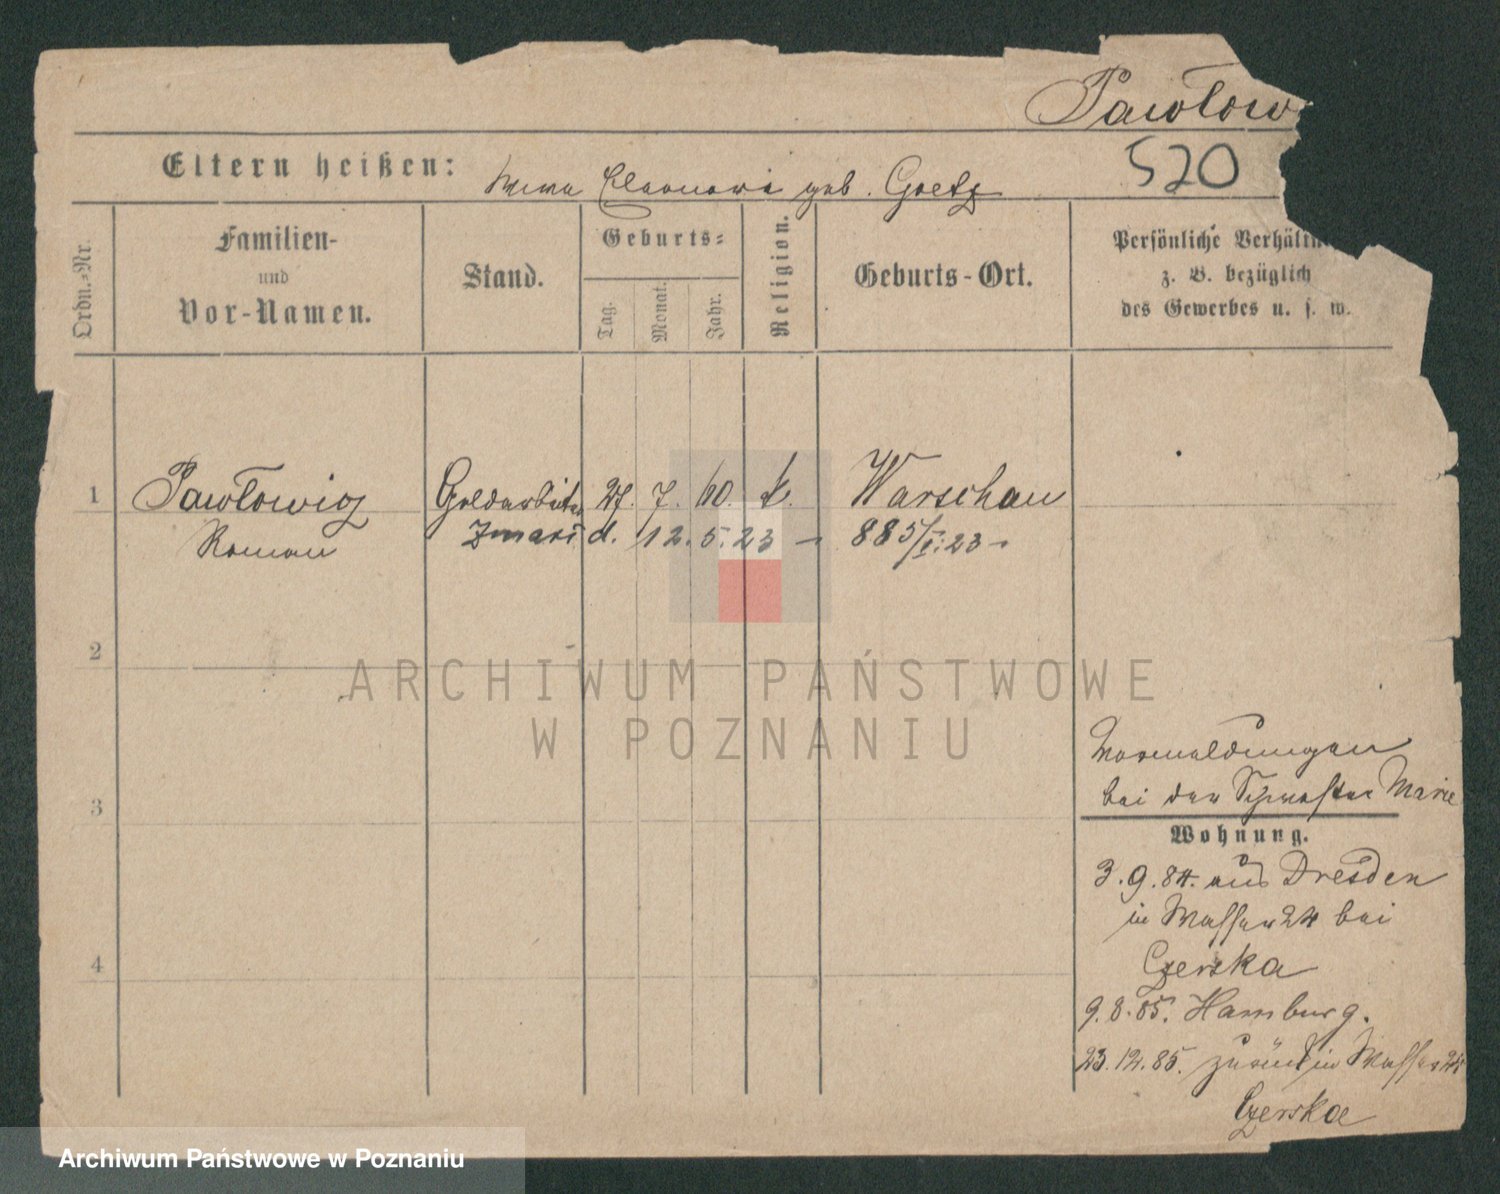 Pawłow
Eltern heißen: Wwe Eleonora geb. Goetz
520
Ordn.-Nr.
Familien-
und
Vor-Namen.
Stand.
Geburts-
Tag.
Monat.
Jahr.
Religion.
Geburts-Ort.
Persönliche Verhältn
z. B. bezüglich
des Gewerbes u. s. w.
1 Pawłowicz Goldarbeiter 27. 7. 60. k. Warschau
Roman Zmarł d. 12. 5. 23 - 885/I. 23 -
2
3
4
Vormeldungen
bei der Schwester Marie
Wohnung.
3. 9. 84. aus Dresden
in Wasser 24 bei
Czerska
9. 8. 85. Hamburg.
23. 12. 85. zurück in Wasser 24
Czerska
ARCHIWUM PAŃSTWOWE
W POZNANIU
Archiwum Państwowe w Poznaniu